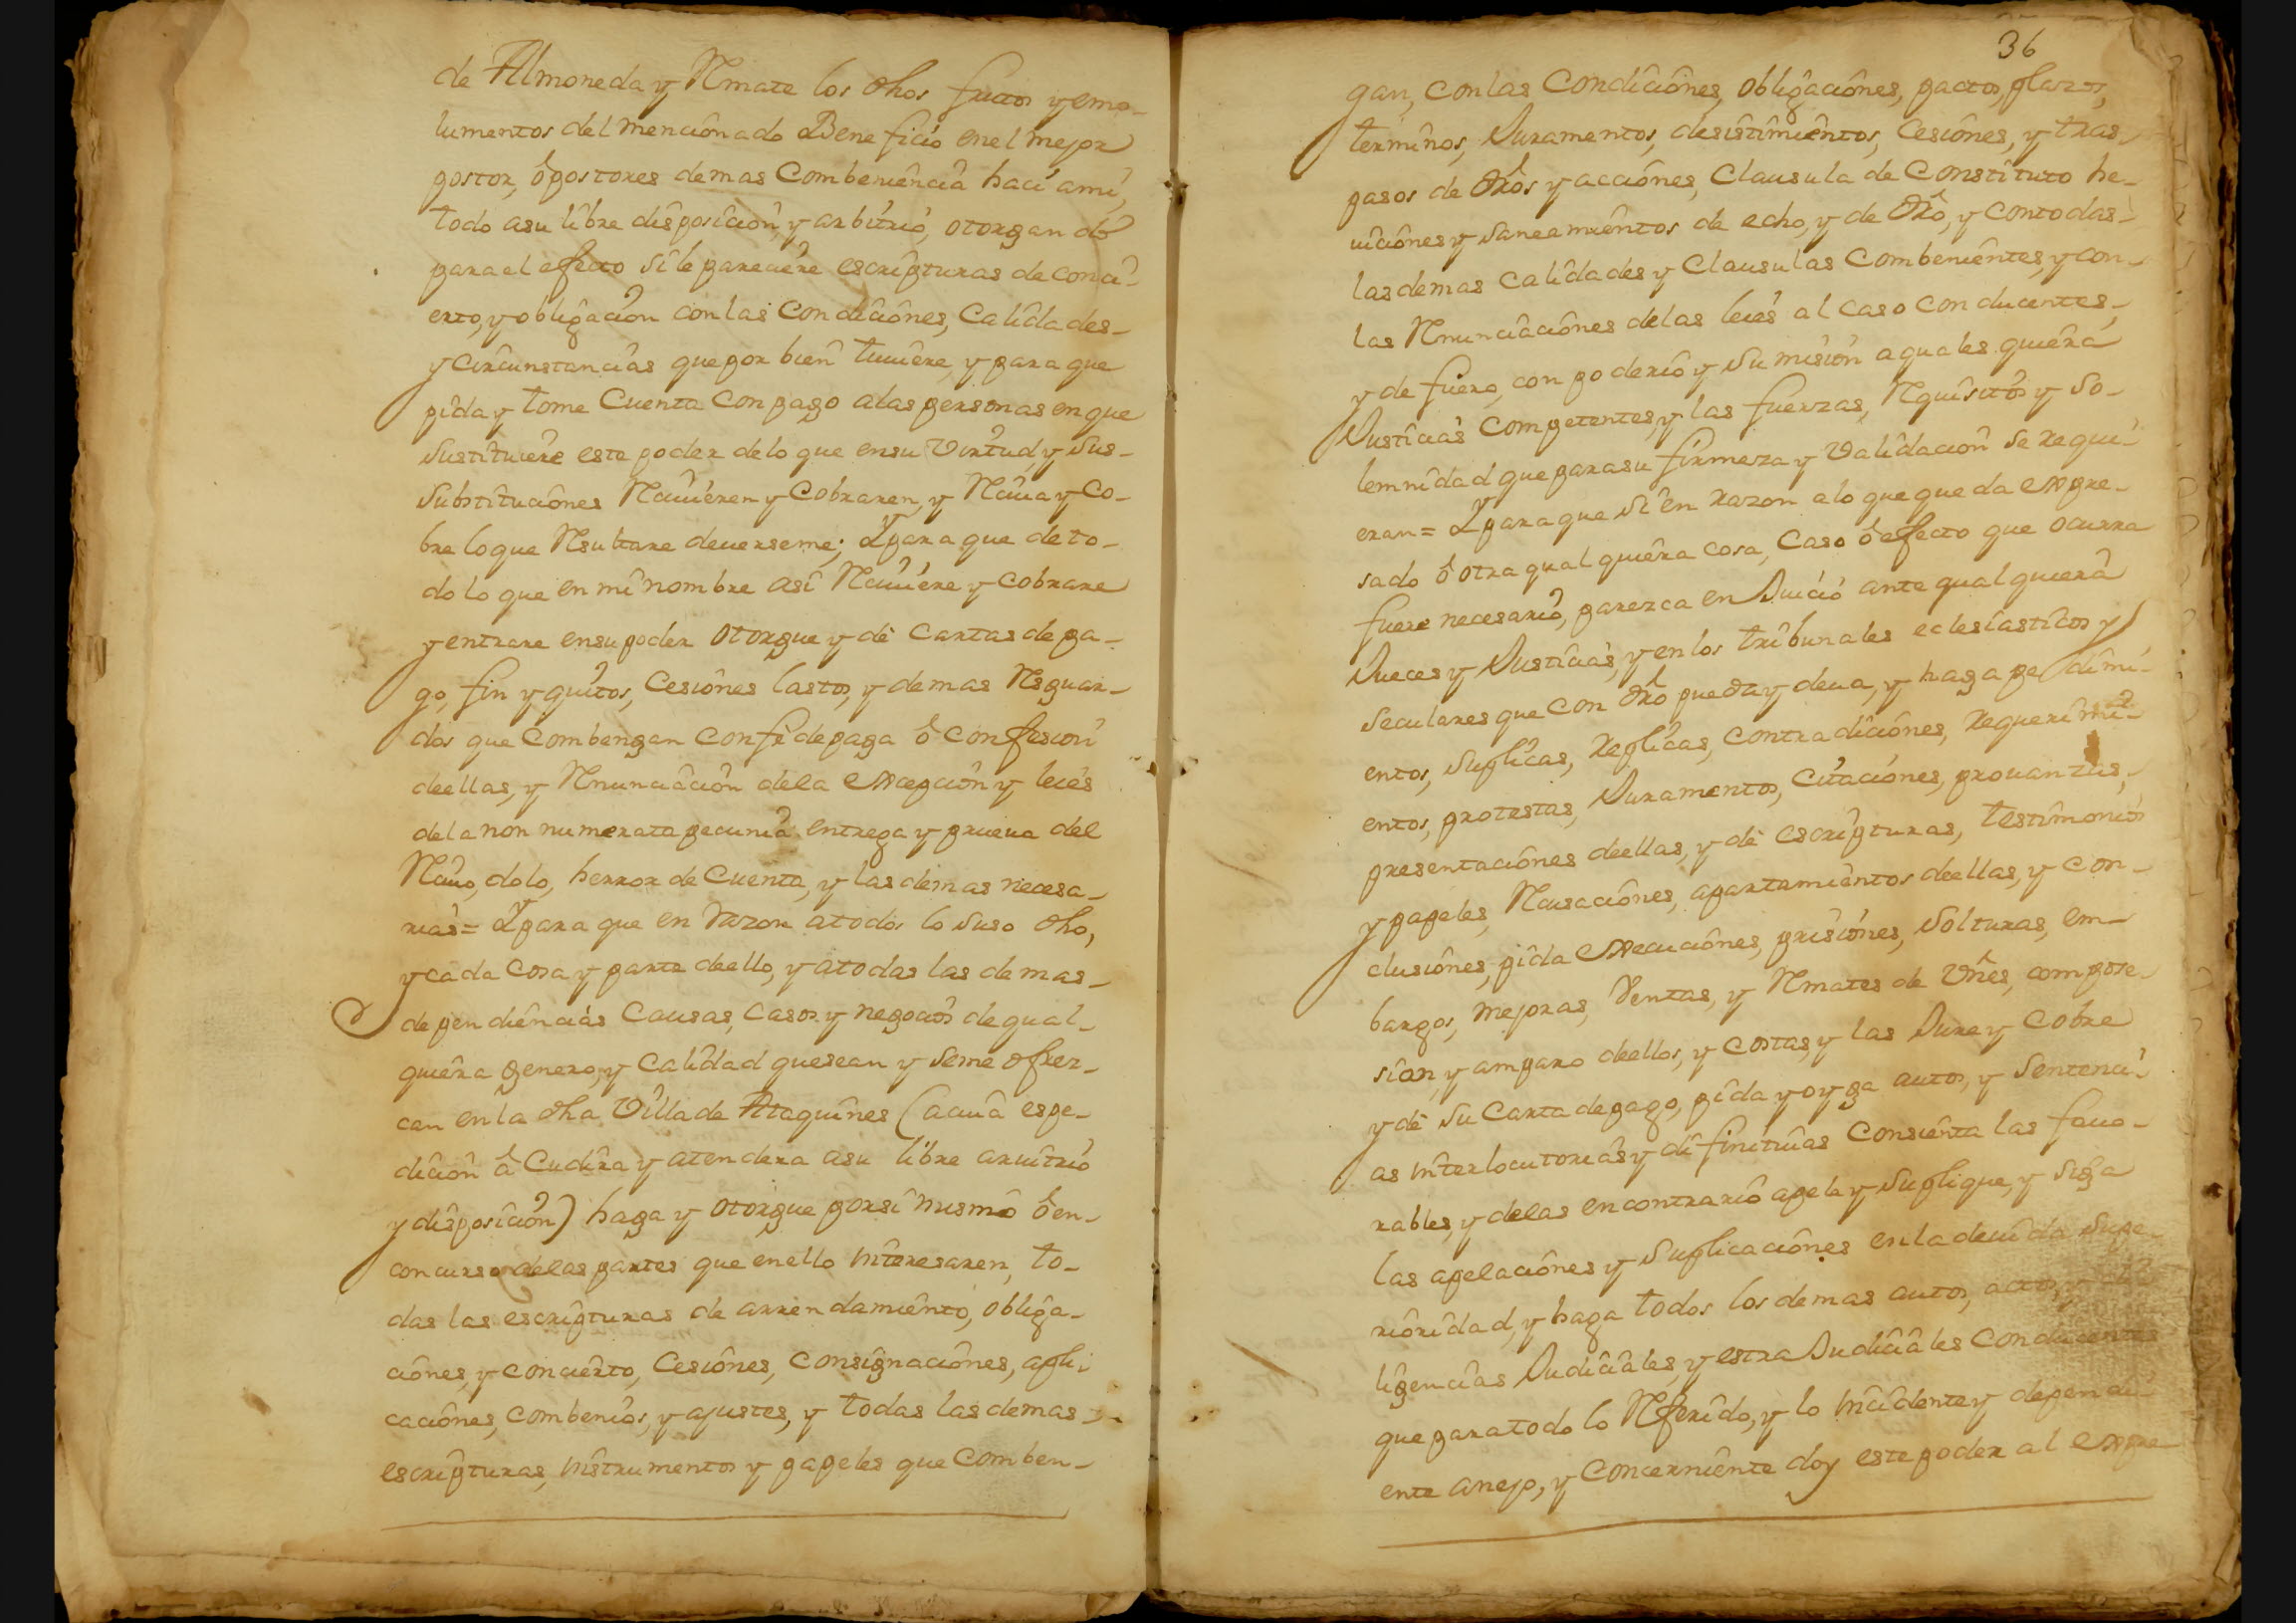 de Almoneda y Remate los dhos frutos y emo-
lumentos del mencionado Beneficio en el mejor
postor, ô postores de mas Combeniencia haci ami,
todo asu libre disposicion, y arbitrio, otorgando
para el efecto si le pareciere escripturas de conci-
erto, y obligacion con las Condiciones, Calidades-
y circunstancias que por bien tuuiere, y para que
pida y tome Cuenta Con pago alas personas en que
Sustituiere este poder delo que ensu Virtud, y sus-
Substituciones Reciuieren y Cobraren, y Reciua y Co-
bre lo que Resultare deuerseme; Y para que de to-
do lo que en mi nombre asi Reciuiere y cobrare
y entrare ensu poder otorgue y dè Cartas de pa-
go, fin y quitos, Cesiones lastos, y demas Resguar-
dos que Combengan con fè de paga ô Confesion
deellas, y Renunciacion dela excepcion y leies
dela non numerata pecunia entrega y prueua del
Reciuo, dolo, herror de Cuenta, y las demas necesa-
rias= Y para que en razon atodos lo suso dho,
y cada Cosa y parte deello, y atodas las demas-
dependiencias Causas, Casos y negocios de qual-
quiera genero, y Calidad que sean y seme ofrez-
can en la dha Villa de Ataquines (acuia espe-
dicion â Cudira y atendera asu libre aruitrio
y disposicion) haga y otorgue por si mismo ô en-
concurso delas partes que enello interesaren, to-
das las escripturas de arrendamiento, obliga-
ciones, y concierto, Cesiones, Consignaciones, apli-
caciones, combenios, y ajustes, y todas las demas
escripturas, instrumentos y papeles que Comben-
36
gan, con las Condiciones, obligaciones, pactos, plazos,
terminos, Juramentos, desistimientos, Cesiones, y tras-
pasos de dros y acciones, Clausula de Constituto he-
uiciones y saneamientos de echo, y de dro, y con todas-
las demas calidades y Clausulas Combenientes, y con-
las Renunciaciones delas leies al caso conducentes-
y de fuero, con poderio y sumision a quales quiera
Justicias Competentes, y las fuerzas, Requisitos y So-
lemnidad que para su firmeza y Validacion se requi-
eran= Y para que si en razon alo que queda expre-
sado ô otra qualquiera cosa, Caso ô efecto que ocurra
fuere necesario, parezca en Juicio ante qualquiera
Jueces y Justicias, y en los tribunales eclesiasticos y
Seculares que con dro pueda y deua, y haga pedimi-
entos, suplicas, replicas, contradiciones, requerimi-
entos, protestas, Juramentos, Citaciones, prouanzas,
presentaciones deellas, y dè escripturas, testimonios
y papeles, Recusaciones, apartamientos deellas, y con-
clusiones, pida execuciones, prisiones, solturas, em-
bargos, mejoras, Ventas, y Remates de Vnês, compose-
sion, y amparo deellos, y costas, y las Jure y Cobre
y dè su Carta de pago, pida y oyga autos, y sentenci-
as interlocutorias y difinitiuas Consienta las fauo-
rables, y delas en contrario apele y suplique, y siga
las apelaciones y suplicaciones en la deuida supe-
rioridad, y haga todos los demas autos, actos, y di-
ligencias Judiciales, y estraJudiciales Conducentes
que para todo lo Referido, y lo incidente y dependi-
ente anejo, y Concerniente doy este poder al expre-